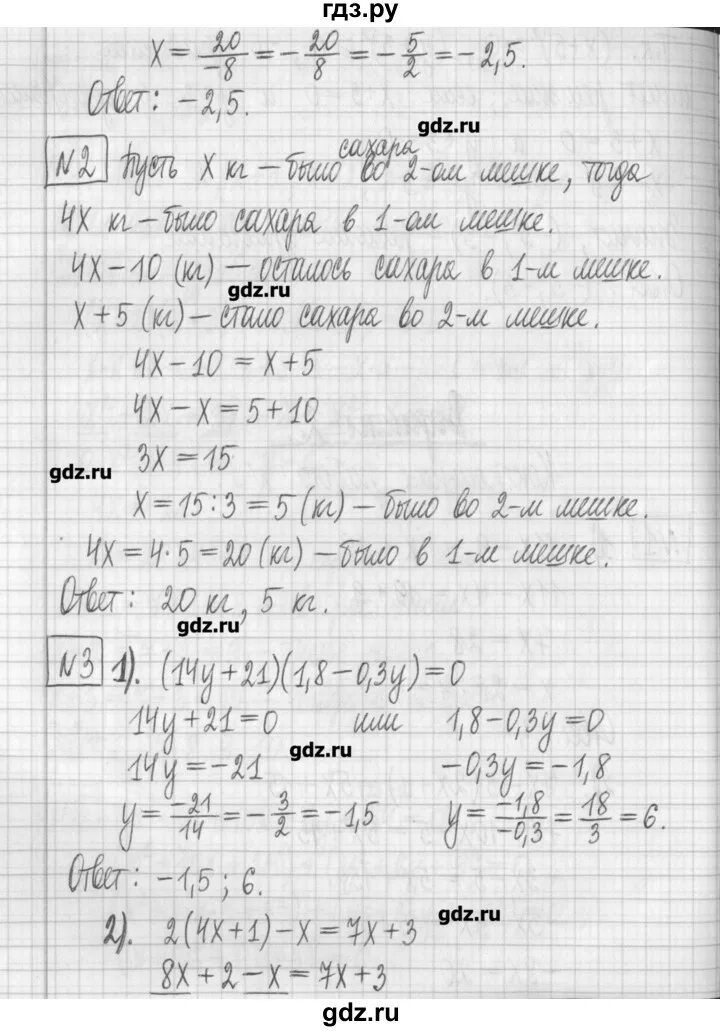 гдз.ру
x = 20/-8 = -20/8 = -5/2 = -2,5.
Ответ: -2,5.
gdz.ru
№2 Пусть x кг – было сахара во 2-ом мешке, тогда
4x кг – было сахара в 1-ом мешке.
4x - 10 (кг) – осталось сахара в 1-м мешке.
gdz.ru
x + 5 (кг) – стало сахара во 2-м мешке.
4x - 10 = x + 5
4x - x = 5 + 10
3x = 15
gdz.ru
x = 15 : 3 = 5 (кг) – было во 2-м мешке.
4x = 4 · 5 = 20 (кг) – было в 1-м мешке.
Ответ: 20 кг, 5 кг.
gdz.ru
№3 1). (14y + 21)(1,8 - 0,3y) = 0
14y + 21 = 0 или 1,8 - 0,3y = 0
gdz.ru
14y = -21 -0,3y = -1,8
y = -21/14 = -3/2 = -1,5 y = -1,8/-0,3 = 18/3 = 6.
Ответ: -1,5; 6.
gdz.ru
2). 2(4x + 1) - x = 7x + 3
8x + 2 - x = 7x + 3
gdz.ru